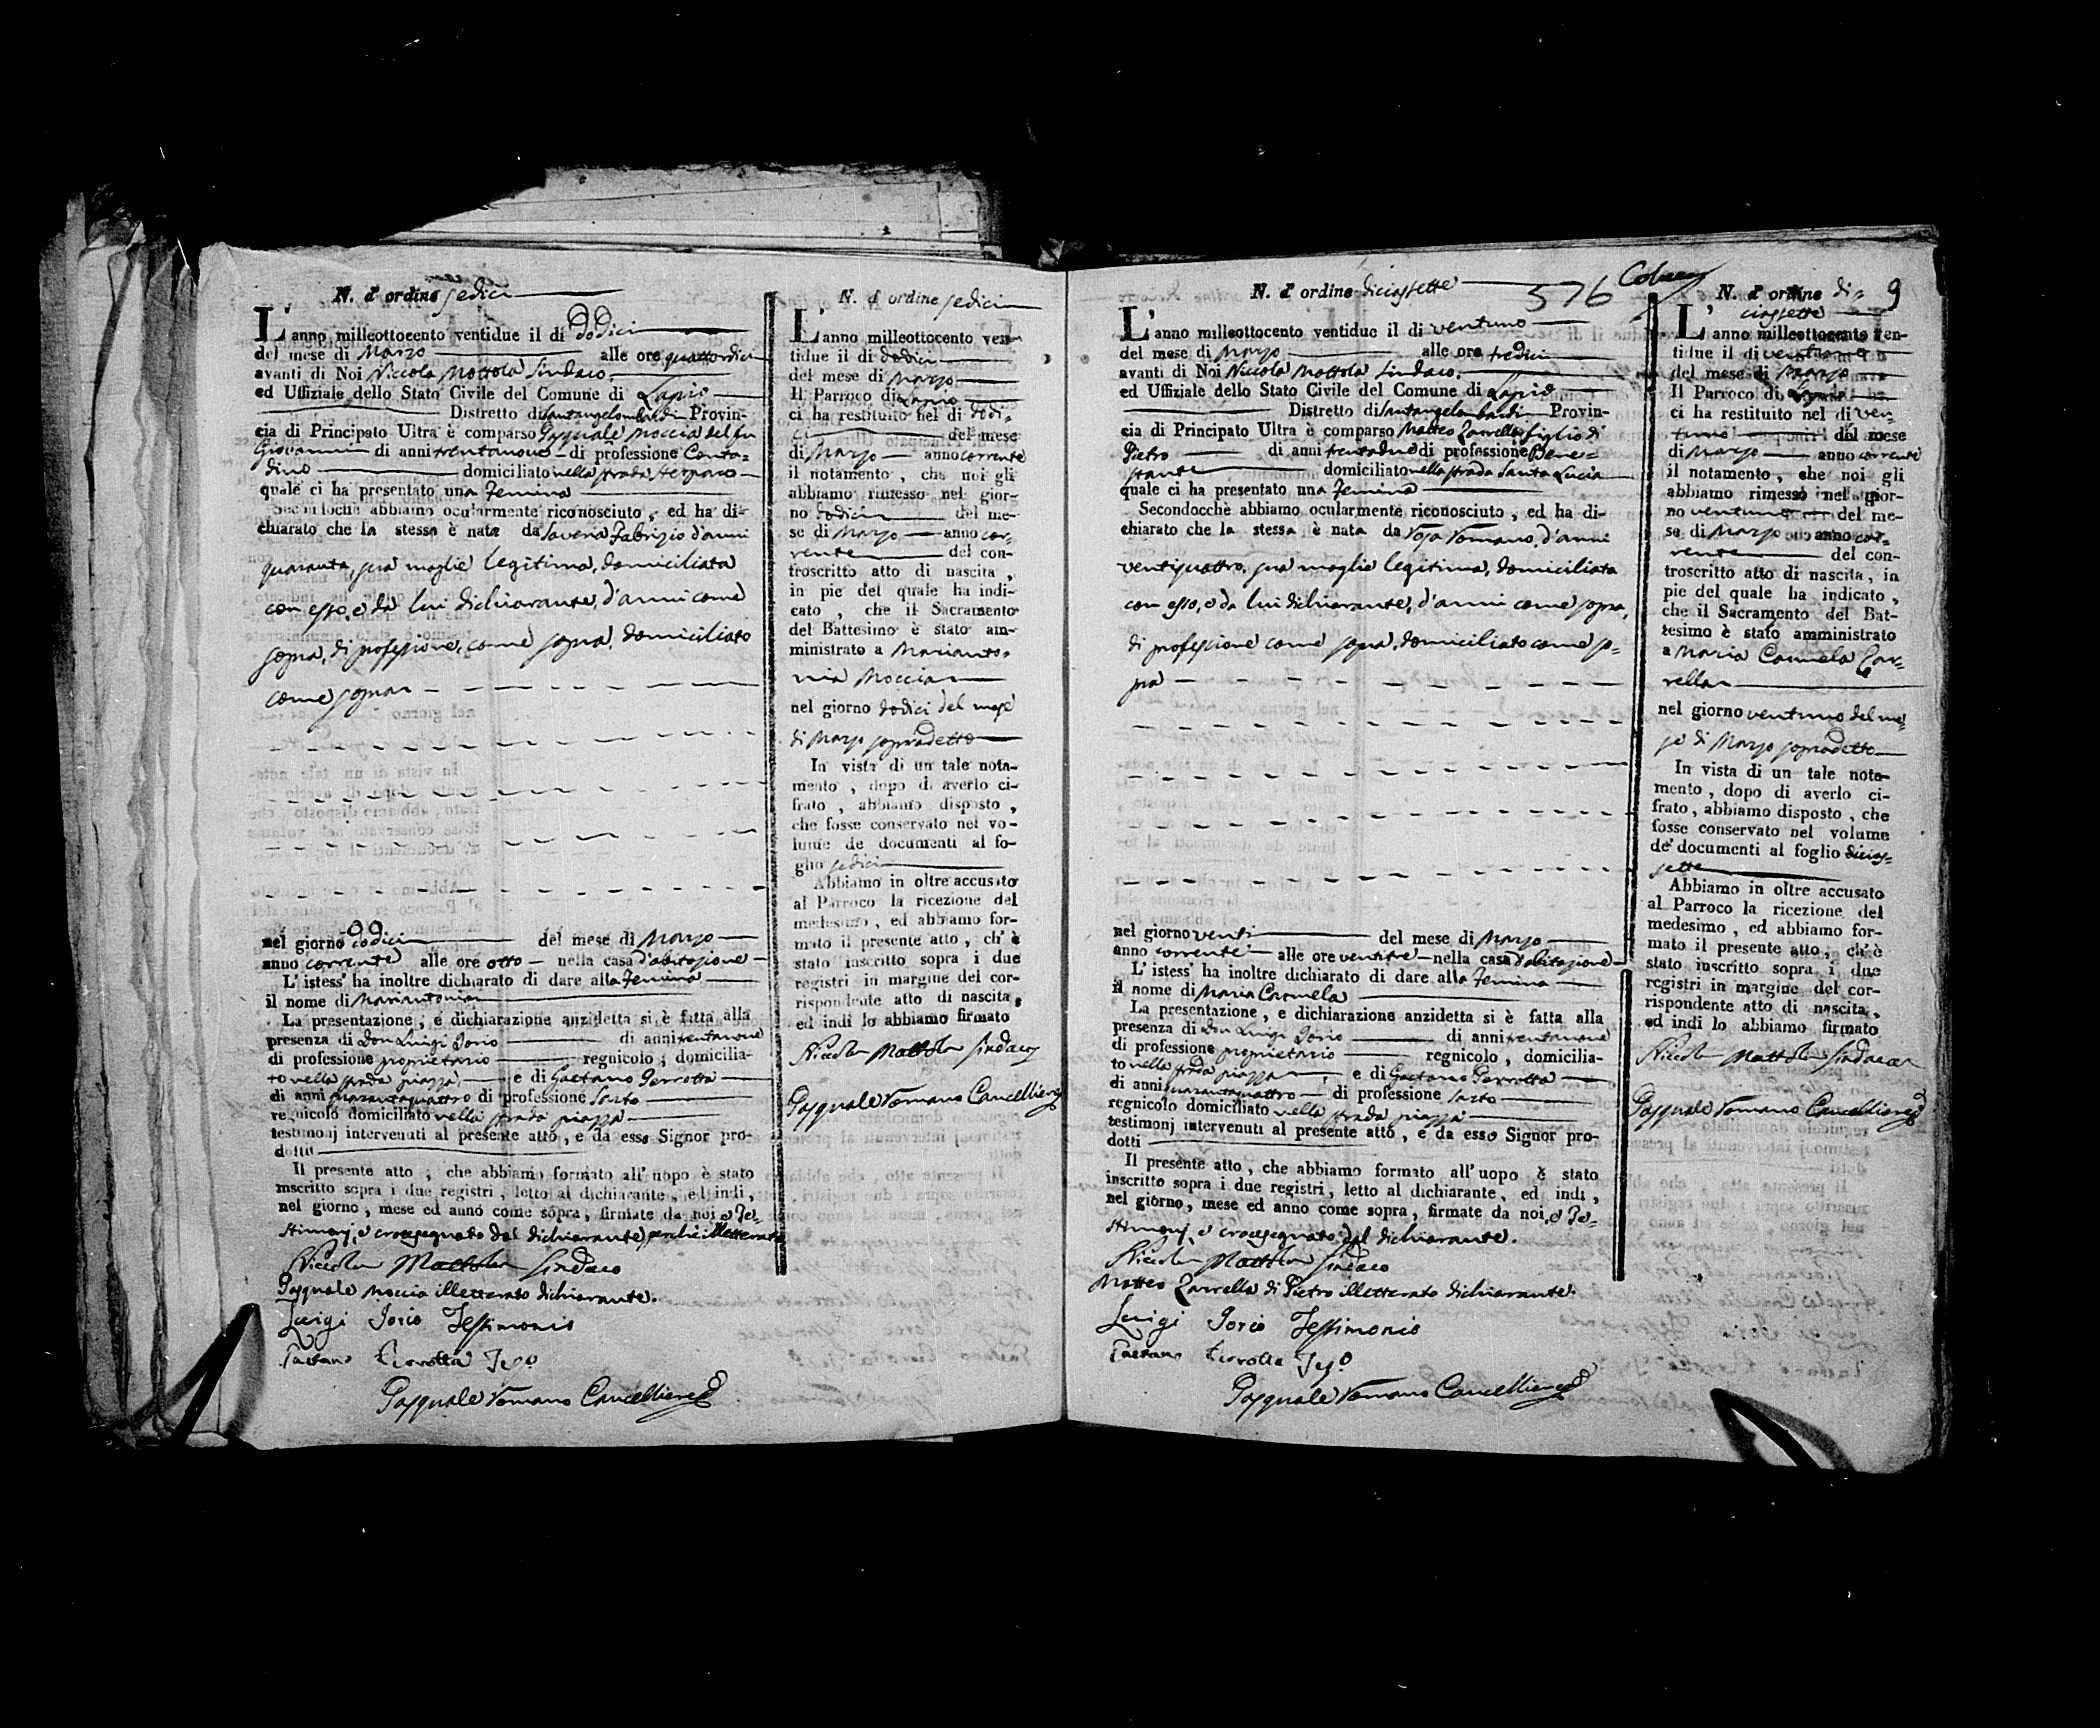 N. d'ordine sedici
L'anno milleottocento ventidue il di dodici
del mese di Marzo alle ore quattordici
avanti di Noi Niccola Mottola Sindaco,
ed Uffiziale dello Stato Civile del Comune di Lapio
Distretto di Santangelombardi Provin-
cia di Principato Ultra è comparso Pasquale Moccia del fu
Giovanni di anni trentanove di professione Conta=
dino domiciliato nella strada
quale ci ha presentato una Femina
Secondochè abbiamo ocularmente riconosciuto, ed ha di-
chiarato che la stessa è nata da Saveria Fabrizio d'anni
quaranta, sua moglie legitima, domiciliata
con esso, e da lui dichiarante, d'anni come
sopra, di professione, come sopra, domiciliato
come sopra
nel giorno dodici del mese di Marzo
anno corrente alle ore otto nella casa d'abitazione
L'istess' ha inoltre dichiarato di dare alla Femina
il nome di Mariantonia
La presentazione, e dichiarazione anzidetta si è fatta alla
presenza di Don Luigi Iorio di anni trentanove
di professione proprietario regnicolo, domicilia-
to nella strada piazza e di Gaetano Perrotta
di anni quarantaquattro di professione Sarto
regnicolo domiciliato nella strada piazza
testimonj intervenuti al presente atto, e da esso Signor pro-
dotti
Il presente atto, che abbiamo formato all'uopo è stato
inscritto sopra i due registri, letto al dichiarante, ed indi,
nel giorno, mese ed anno come sopra, firmate da noi, e Te=
stimonj, e crocesegnato dal dichiarante, perchè illetterato
Niccola Mottola Sindaco
Pasquale Moccia illetterato dichiarante.
Luigi Iorio Testimonio
Gaetano Perrotta Tes.o
Pasquale Romano Cancelliere
N. d'ordine sedici
L'anno milleottocento ven-
tidue il di dodici
del mese di Marzo
Il Parroco di Lapio
ci ha restituito nel di dodi=
ci del mese
di Marzo anno corrente
il notamento, che noi gli
abbiamo rimesso nel gior-
no dodici del me-
se di Marzo anno cor=
rente del con-
troscritto atto di nascita,
in pie del quale ha indi-
cato, che il Sacramento
del Battesimo è stato am-
ministrato a Marianto=
nia Moccia
nel giorno dodici del mese
di Marzo sopradetto
In vista di un tale nota-
mento, dopo di averlo ci-
frato, abbiamo disposto,
che fosse conservato nel vo-
lume de documenti al fo-
glio sedici
Abbiamo in oltre accusato
al Parroco la ricezione del
medesimo, ed abbiamo for-
mato il presente atto, ch'è
stato inscritto sopra i due
registri in margine del cor-
rispondente atto di nascita,
ed indi lo abbiamo firmato
Niccola Mottola Sindaco
Pasquale Romano Cancelliere
N. d'ordine diciassette 576
L'anno milleottocento ventidue il di ventuno
del mese di Marzo alle ore tredici
avanti di Noi Niccola Mottola Sindaco,
ed Uffiziale dello Stato Civile del Comune di Lapio
Distretto di Santangelombardi Provin-
cia di Principato Ultra è comparso Matteo Zarrella figlio di
Pietro di anni trentadue di professione Bene=
stante domiciliato nella strada Santa Lucia
quale ci ha presentato una Femina
Secondocchè abbiamo ocularmente riconosciuto, ed ha di-
chiarato che la stessa è nata da Rosa Romano, d'anni
ventiquattro, sua moglie legitima, domiciliata
con esso, e da lui dichiarante, d'anni come sopra,
di professione come sopra, domiciliato come so=
pra
nel giorno venti del mese di Marzo
anno corrente alle ore ventitre nella casa d'abitazione
L'istess' ha inoltre dichiarato di dare alla Femina
il nome di Maria Carmela
La presentazione, e dichiarazione anzidetta si è fatta alla
presenza di Don Luigi Iorio di anni trentanove
di professione proprietario regnicolo, domicilia-
to nella strada piazza, e di Gaetano Perrotta
di anni quarantaquattro di professione Sarto
regnicolo domiciliato nella strada piazza
testimonj intervenuti al presente atto, e da esso Signor pro-
dotti
Il presente atto, che abbiamo formato all'uopo è stato
inscritto sopra i due registri, letto al dichiarante, ed indi,
nel giorno, mese ed anno come sopra, firmate da noi, e Te=
stimonj, e crocesegnato dal dichiarante.
Niccola Mottola Sindaco
Matteo Zarrella di Pietro illetterato dichiarante.
Luigi Iorio Testimonio
Gaetano Perrotta Tes.o
Pasquale Romano Cancelliere
N. d'ordine di= 9
ciassette
L'anno milleottocento ven-
tidue il di ventuno
del mese di Marzo
Il Parroco di Lapio
ci ha restituito nel di ven=
tuno del mese
di Marzo anno corrente
il notamento, che noi gli
abbiamo rimesso nel gior-
no ventuno del me-
se di Marzo anno cor=
rente del con-
troscritto atto di nascita, in
pie del quale ha indicato,
che il Sacramento del Bat-
tesimo è stato amministrato
a Maria Carmela Zar=
rella
nel giorno ventuno del me=
se di Marzo sopradetto
In vista di un tale nota-
mento, dopo di averlo ci-
frato, abbiamo disposto, che
fosse conservato nel volume
de' documenti al foglio dicias=
sette
Abbiamo in oltre accusato
al Parroco la ricezione del
medesimo, ed abbiamo for-
mato il presente atto, ch'è
stato inscritto sopra i due
registri in margine del cor-
rispondente atto di nascita,
ed indi lo abbiamo firmato
Niccola Mottola Sindaco
Pasquale Romano Cancelliere